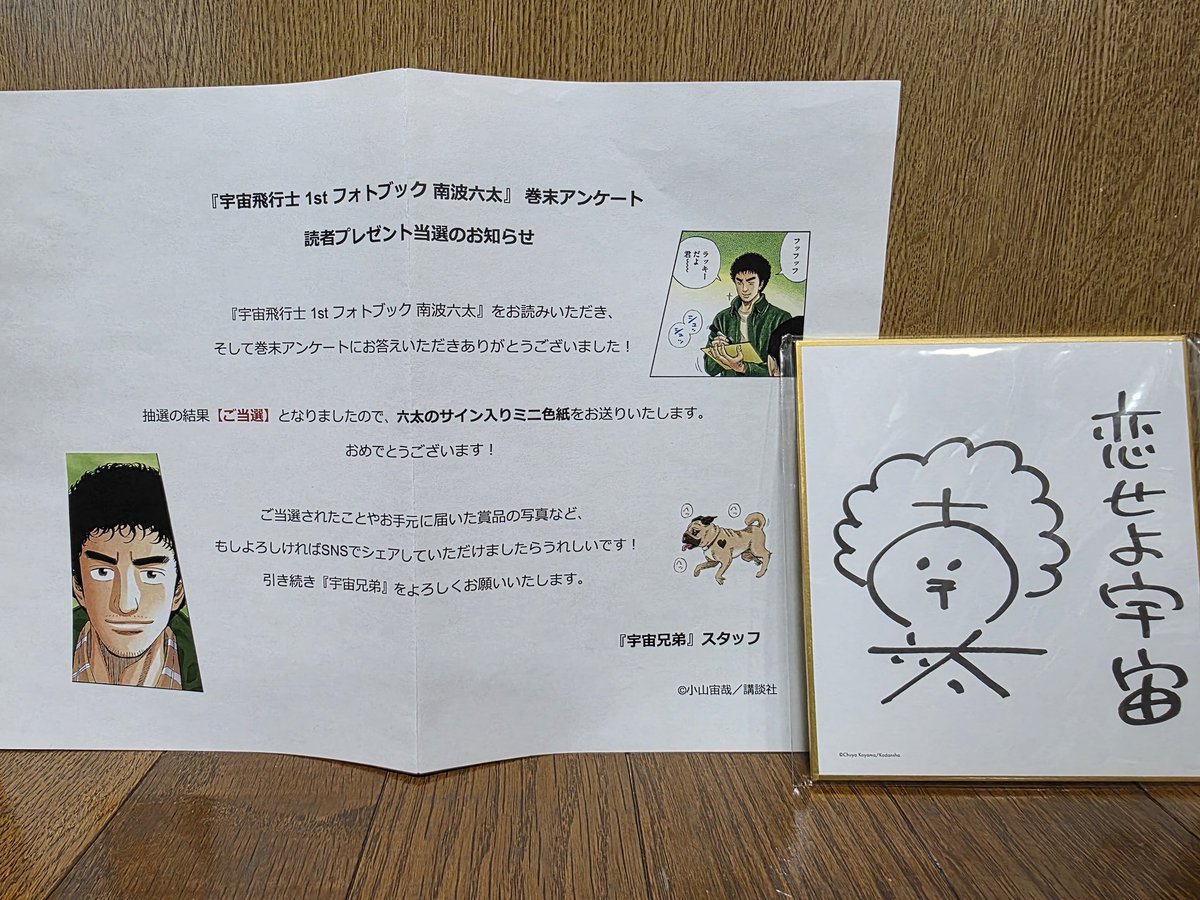 『宇宙飛行士 1st フォトブック 南波六太』 巻末アンケート
読者プレゼント当選のお知らせ
フッフッフ
ラッキー
だよ
君～～
シュッ
シュッ
『宇宙飛行士 1st フォトブック 南波六太』をお読みいただき、
そして巻末アンケートにお答えいただきありがとうございました！
抽選の結果【ご当選】となりましたので、六太のサイン入りミニ色紙をお送りいたします。
おめでとうございます！
ご当選されたことやお手元に届いた賞品の写真など、
もしよろしければSNSでシェアしていただけましたらうれしいです！
引き続き『宇宙兄弟』をよろしくお願いいたします。
『宇宙兄弟』スタッフ
©小山宙哉／講談社
恋せよ宇宙
©Chuya Koyama/Kodansha